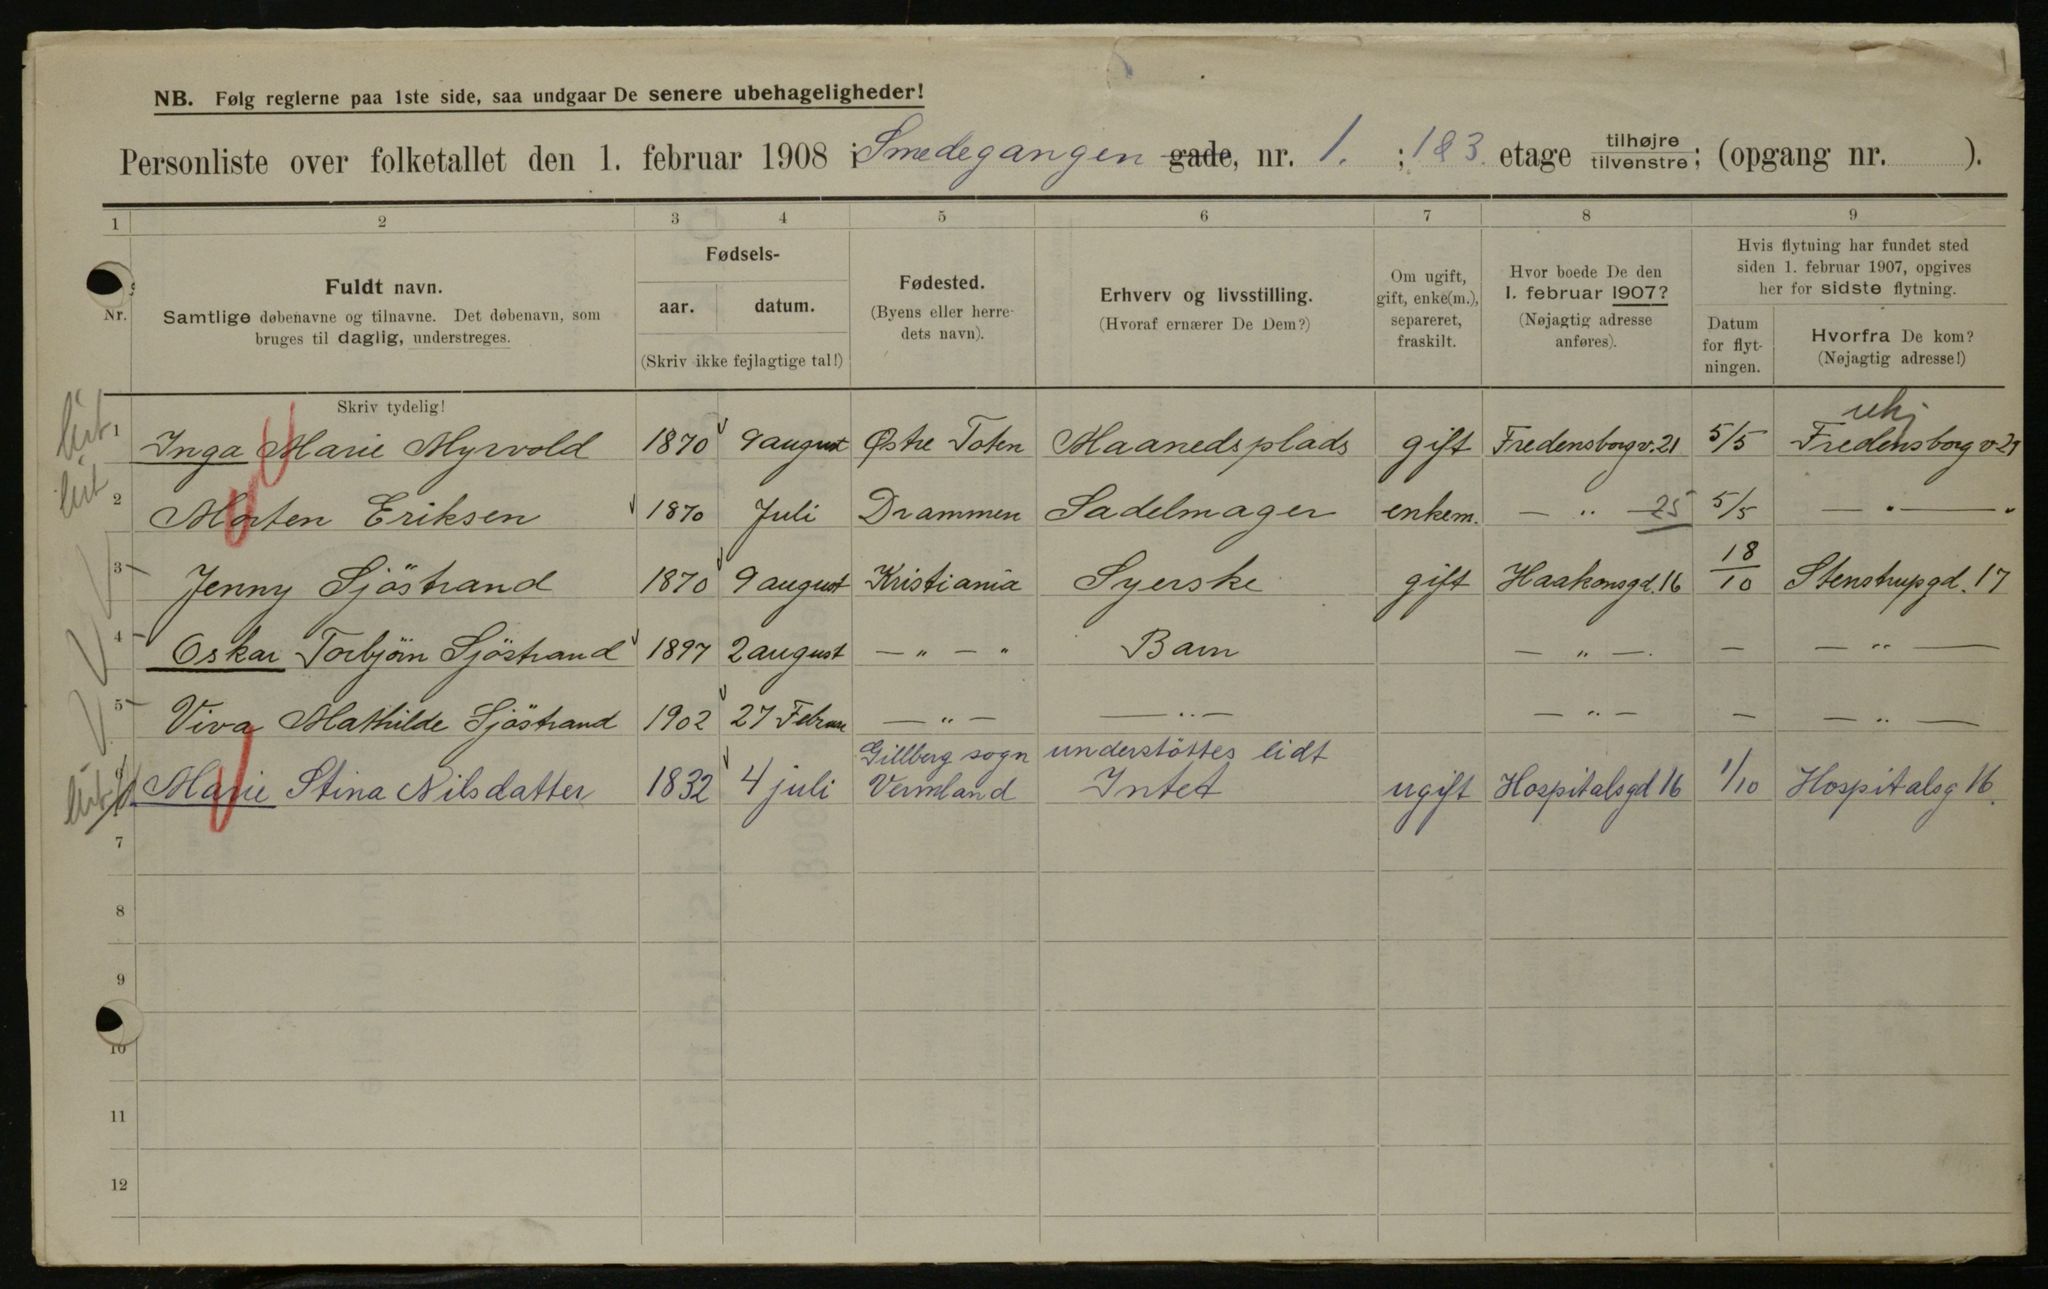 NB. Følg reglerne paa 1ste side, saa undgaar De senere ubehageligheder!
Personliste over folketallet den 1. februar 1908 i Smedegangen gade, nr. 1. ; 1&3. etage tilhøjre tilvenstre; (opgang nr. ).
1 2 3 4 5 6 7 8 9
Nr.
Fuldt navn.
Samtlige døbenavne og tilnavne. Det døbenavn, som
bruges til daglig, understreges.
Skriv tydelig!
Fødsels-
aar. datum.
(Skriv ikke fejlagtige tal!)
Fødested.
(Byens eller herre-
dets navn).
Erhverv og livsstilling.
(Hvoraf ernærer De Dem?)
Om ugift,
gift, enke(m.),
separeret,
fraskilt.
Hvor boede De den
1. februar 1907?
(Nøjagtig adresse
anføres).
Hvis flytning har fundet sted
siden 1. februar 1907, opgives
her for sidste flytning.
Datum
for flyt-
ningen.
Hvorfra De kom?
(Nøjagtig adresse!)
1 Inga Marie Myrvold 1870 9 august Østre Toten Maanedsplads gift Fredensborgv. 21 5/5 Fredensborg v. 21
2 Morten Eriksen 1870 Juli Drammen Sadelmager enkem. — " — 25 5/5 — " — "
3 Jenny Sjöstrand 1870 9 august Kristiania Syerske gift Haakonsgd. 16 18/10 Stenstrupgd. 17
4 Oskar Torbjörn Sjöstrand 1897 2 august — " — " Barn — " —. — — " —
5 Viva Mathilde Sjöstrand 1902 27 Februar — " — — " — — " — — — " —
Gillberg sogn understöttes lidt
Marie Stina Nilsdatter 1832 4 juli Vermland Intet ugift Hospitalsgd 16 1/10 Hospitalsg 16.
7
8
9
10
11
12